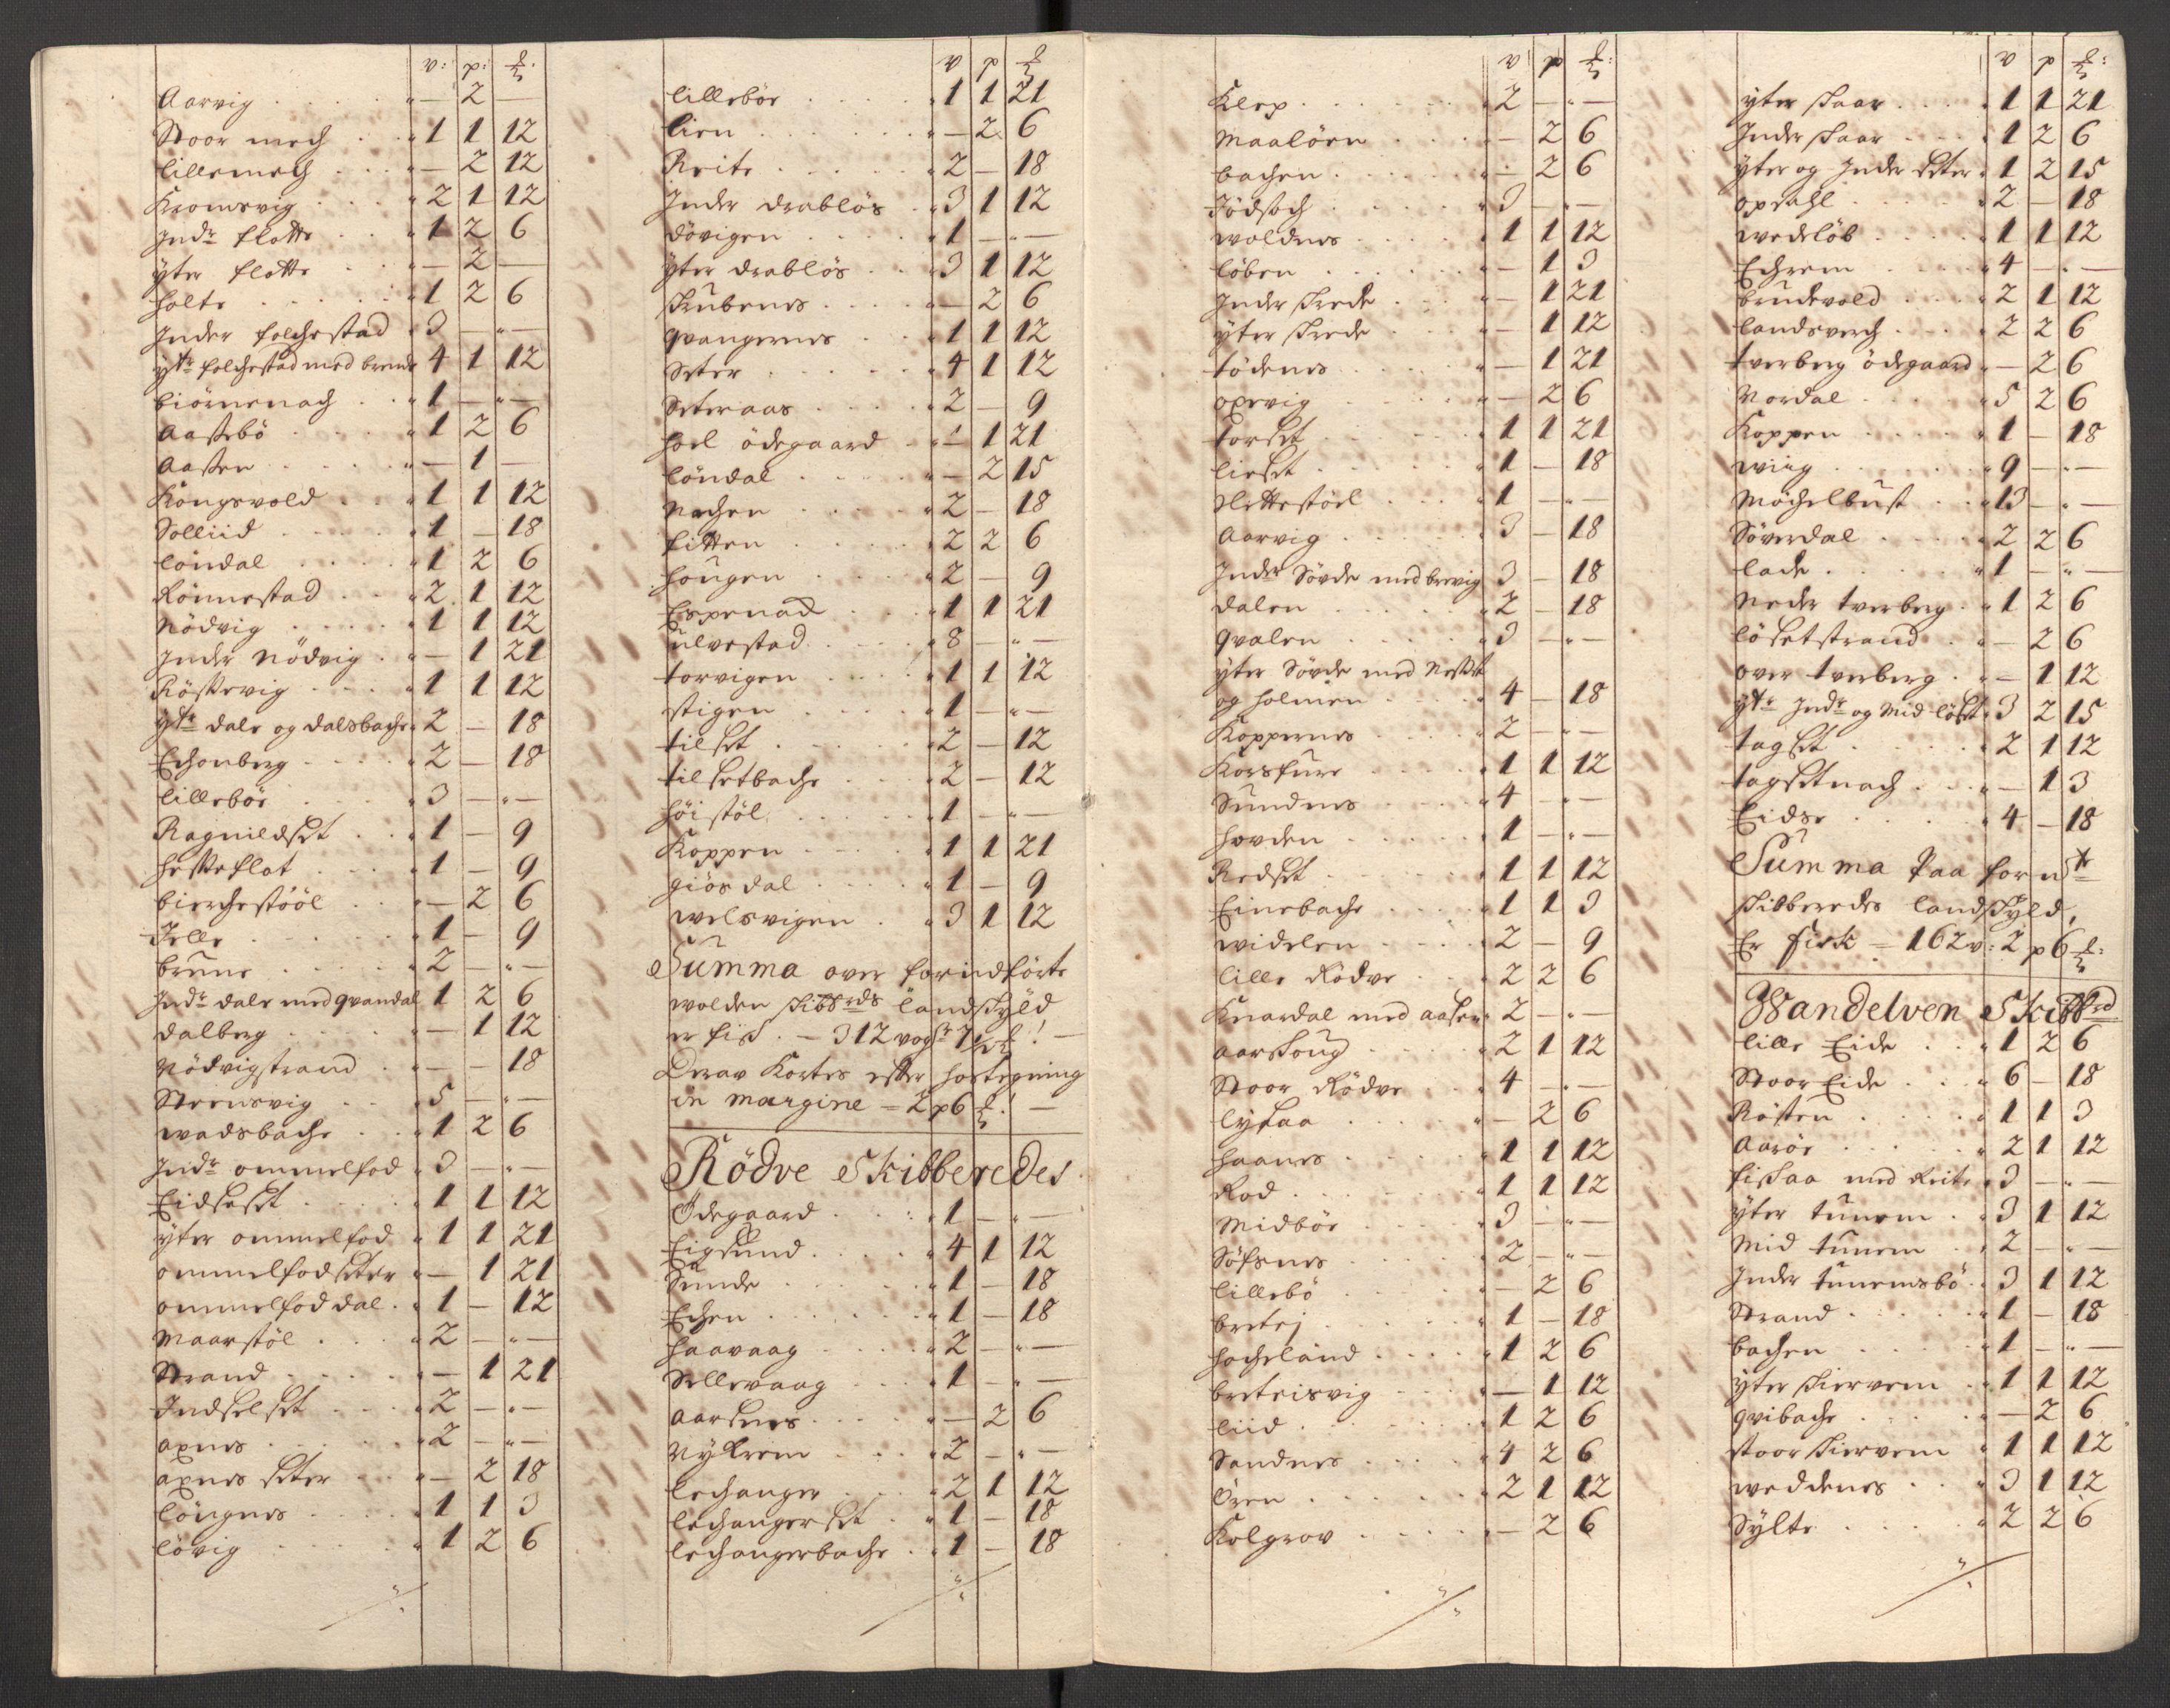 v: p: ℔:
Aarvig . . . . — 2 —
Stoor mech . . 1 1 12
lillemech . . — 2 12
Kromsvig . . 2 1 12
Indr flotte . . 1 2 6
yter flotte . . — 2 —
holte . . . . 1 2 6
Inder folchestad 3 — " —
ytr folchestad med brende 4 1 12
biörnenach . . 1 — " —
Aastebö . . . 1 2 6
Aasten . . . . — 1 —
Kongsvold . . 1 1 12
Solliid . . . . 1 — 18
löndal . . . . 1 2 6
Rönnestad . . 2 1 12
Nödvig . . . . 1 1 12
Inder Nödvig . — 1 21
Röstevig . . . 1 1 12
ytr dale og dalsbache 2 — 18
Echonberg . . . 2 — 18
lillebör . . . . 3 — " —
Ragnildset . . 1 — 9
hesteflot . . . 1 — 9
bierchestööl . . — 2 6
Jelle . . . . . 1 — 9
brune . . . . 2 — " —
Indr dale med qvandal 1 2 6
dalberg . . . . — 1 12
Nödvigstrand . . — — 18
Steensvig . . . 5 — " —
wadsbache . . 1 2 6
Indr ommelfod 3 — " —
Eidseset . . . 1 1 12
yter ommelfod 1 1 21
ommelfodseter — 1 21
ommelfoddal . 1 — 12
Maarstöl . . . 2 — " —
Strand . . . . — 1 21
Indselset . . . 2 — " —
axnes . . . . 2 — " —
axnes seter . . — 2 18
löngnes . . . 1 1 3
lövig . . . . 1 2 6
v p ℔
lillebör . . . . 1 1 21
lien . . . . . — 2 6
Reite . . . . . 2 — 18
Inder drablös . 3 1 12
dövigen . . . . 1 — " —
yter drablös . . 3 1 12
skubenes . . . — 2 6
qvangernes . . 1 1 12
Seter . . . . . 4 1 12
Seteraas . . . 2 — 9
hoel ödegaard . — 1 21
löndal . . . . — 2 15
Nachen . . . . 2 — 18
fitten . . . . 2 2 6
hougen . . . . 2 — 9
Espenad . . . 1 1 21
ulvestad . . . 8 — " —
torvigen . . . 1 1 12
stigen . . . . 1 — " —
tilset . . . . 2 — 12
tilsetbache . . 2 — 12
höistöl . . . . 1 — " —
Koppen . . . . 1 1 21
giösdal . . . . 1 — 9
welsvigen . . 3 1 12
Summa over forindförte
wolden skibbrds landskyld
er fisk . — 312 vogr 7½ ℔! —
Derav Kortes efter hostegning
in margine — 2 p 6 ℔! —
Rödve Skibberedes
Ödegaard . . . 1 — " —
Eigsund . . . . 4 1 12
Sunde . . . . 1 — 18
Echen . . . . 1 — 18
haavaag . . . 2 — " —
Sellevaag . . . 1 — " —
aarsnes . . . . — 2 6
Nykrem . . . 2 — " —
lechanger . . . 2 1 12
lechangerset . 1 — 18
lechangerbache . 1 — 18
v p ℔:
Klep . . . . . 2 — " —
Maalöen . . . — 2 6
bachen . . . . — 2 6
Jödsoch . . . . 3 — " —
woldnes . . . . 1 1 12
löben . . . . . — 1 3
Inder skrede . . — 1 21
yter skrede . . — 1 12
södenes . . . . — 1 21
oxevig . . . . — 2 6
torset . . . . 1 1 21
lieset . . . . 1 — 18
Slettestöel . . . 1 — " —
Aarvig . . . . 3 — 18
Indr Sövde med brevig 3 — 18
dalen . . . . . 2 — 18
qvalen . . . . 3 — " —
yter Sövde med Nestet
og holmen . . . 4 — 18
Koppernes . . . 2 — " —
Korsfure . . . 1 1 12
Sundnes . . . 4 — " —
hovden . . . . 1 — " —
Redset . . . . 1 1 12
Einebache . . . 1 1 3
widelen . . . . 2 — 9
lille Rödve . . 2 2 6
Knardal med aasen 2 — " —
aarskoug . . . 2 1 12
Stoor Rödve . . 4 — " —
lysaa . . . . — 2 6
haanes . . . . 1 1 12
Rod . . . . . 1 1 12
Midbör . . . . 3 — " —
Söfsnes . . . . 2 — " —
lillebö . . . . — 2 6
bretej . . . . 1 — 18
hocheland . . . 1 2 6
bretrisvig . . . — 1 12
liid . . . . . 1 2 6
Sandnes . . . 4 2 6
Ören . . . . . 2 1 12
Kolgrov . . . . — 2 6
v p ℔:
yter skaar . . . 1 1 21
Inder skaar . . 1 2 6
yter og Inder seter 1 2 15
opsahl . . . . 2 — 18
wederöb . . . 1 1 12
Echrem . . . . 4 — " —
brudevold . . . 2 1 12
landsverch . . . 2 2 6
tverberg ödegaard — 2 6
Nordal . . . . 5 2 6
Koppen . . . . 1 — 18
wiig . . . . . 9 — " —
Möchelbust . . 13 — " —
Söverdal . . . 2 2 6
lade . . . . . 1 — " —
Neder tverberg . 1 2 6
lösetstrand . . — 2 6
over tverberg . — 1 12
ytr Indr og Mid löset 3 2 15
tagset . . . . 2 1 12
tagsetnach . . — 1 3
Eidse . . . . . 4 — 18
Summa paa fornte
skibberedes landskyld,
Er fisk — 162 v: 2 p 6 ℔:
Wandelven Skibbrd
lille Eide . . . 1 2 6
Stoor Eide . . . 6 — 18
Rösten . . . . 1 1 3
Aaröe . . . . 2 1 12
fiskaa med Reite 3 — " —
yter tunem . . 3 1 12
Mid tunem . . 2 — " —
Inder tunemsbö . 3 1 12
Strand . . . . 1 — 18
bachen . . . . 1 — " —
yter skiervem . . 1 1 12
qvibache . . . — 2 6
stoor skiervem . 1 1 12
weddenes . . . 3 1 12
Sylte . . . . . 2 2 6